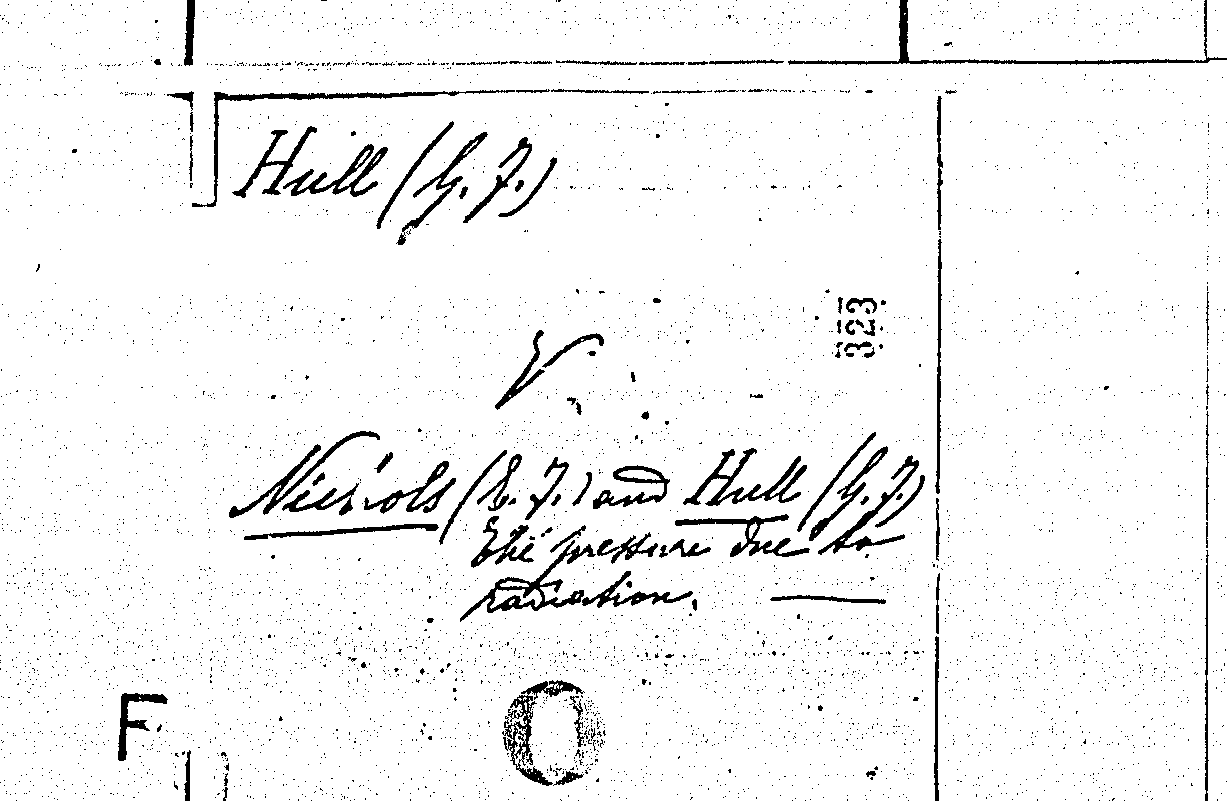 Hull (G. F.)
V
323
Nichols (E. F.) and Hull (G. F.)
The pressure due to
radiation. —
F
O